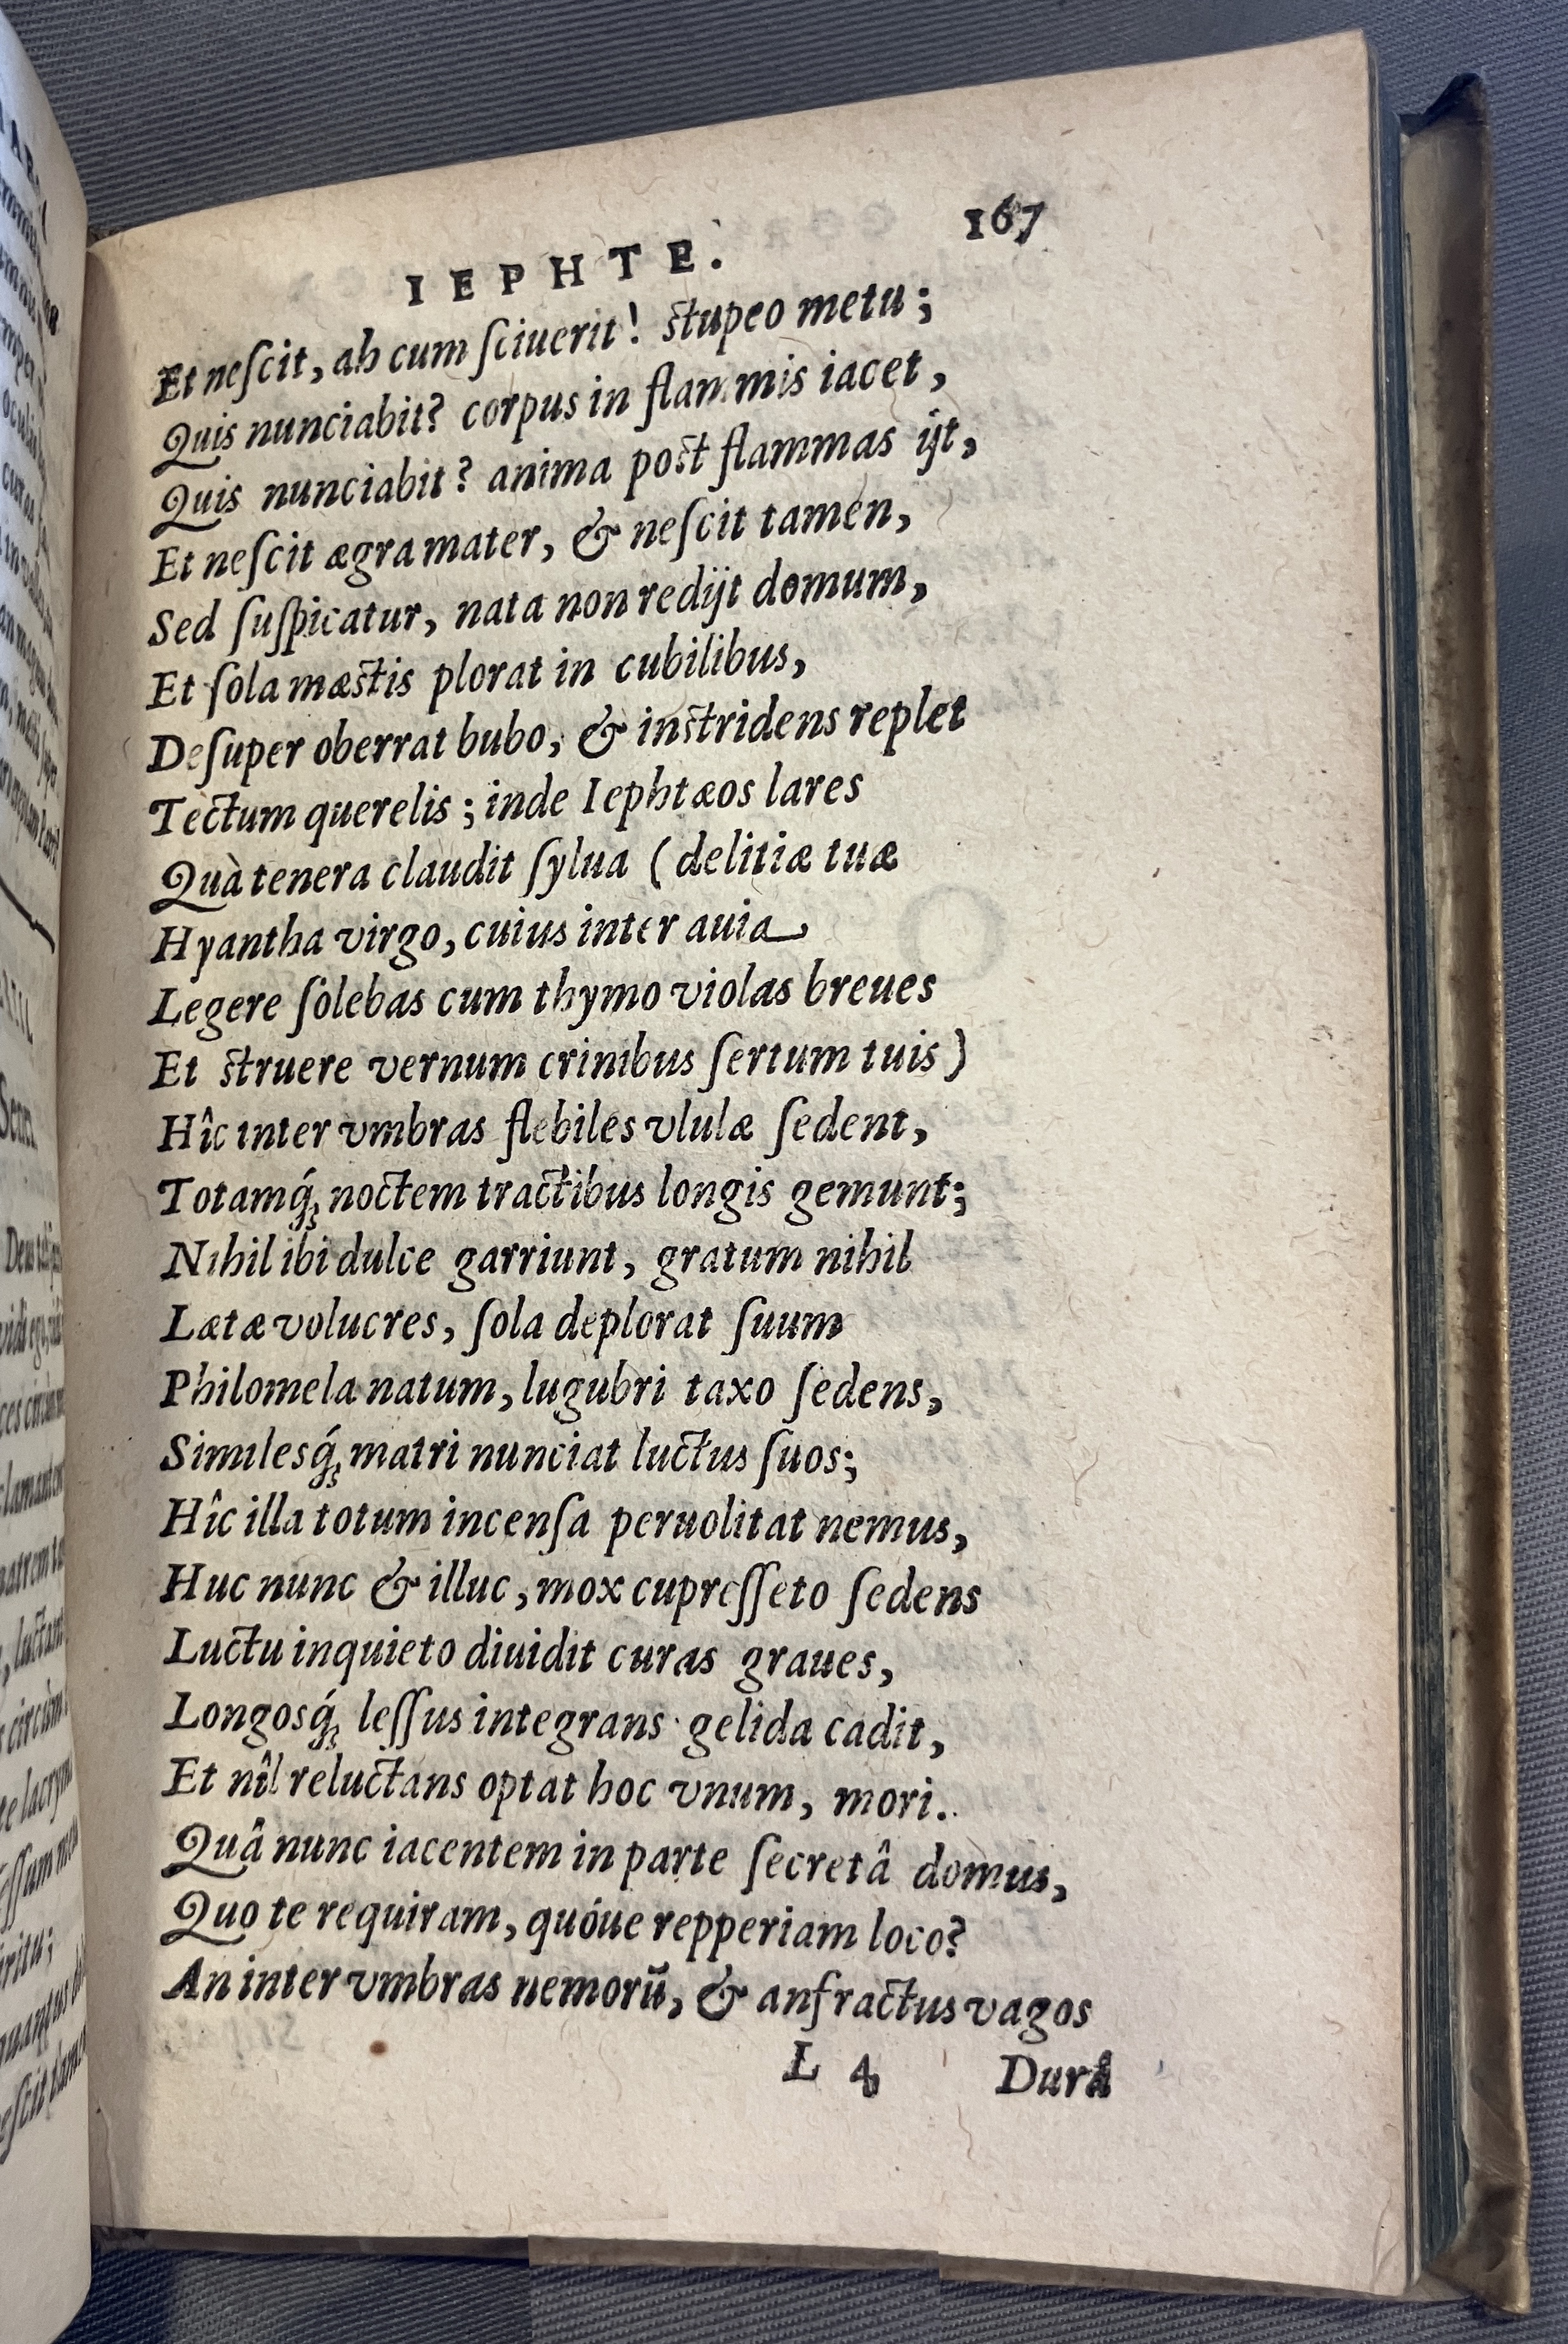 IEPHTE. 167
Et neſcit, ah cum ſciuerit! ſtupeo metu;
Quis nunciabit? corpus in flammis iacet,
Quis nunciabit? anima poſt flammas ijt,
Et neſcit ægra mater, & neſcit tamen,
Sed ſuſpicatur, nata non redijt domum,
Et ſola mæſtis plorat in cubilibus,
Deſuper oberrat bubo, & inſtridens replet
Tectum querelis; inde Iephtæos lares
Quà tenera claudit ſylua (delitiæ tuæ
Hyantha virgo, cuius inter auia
Legere ſolebas cum thymo violas breues
Et ſtruere vernum crinibus ſertum tuis)
Hîc inter vmbras flebiles vlulæ ſedent,
Totamq́; noctem tractibus longis gemunt;
Nihil ibi dulce garriunt, gratum nihil
Lætæ volucres, ſola deplorat ſuum
Philomela natum, lugubri taxo ſedens,
Similesq́; matri nunciat luctus ſuos;
Hîc illa totum incenſa peruolitat nemus,
Huc nunc & illuc, mox cupreſſeto ſedens
Luctu inquieto diuidit curas graues,
Longosq́; leſſus integrans gelida cadit,
Et nîl reluctans optat hoc vnum, mori.
Quâ nunc iacentem in parte ſecretâ domus,
Quo te requiram, quóue repperiam loco?
An inter vmbras nemorū, & anfractus vagos
L 4 Durâ